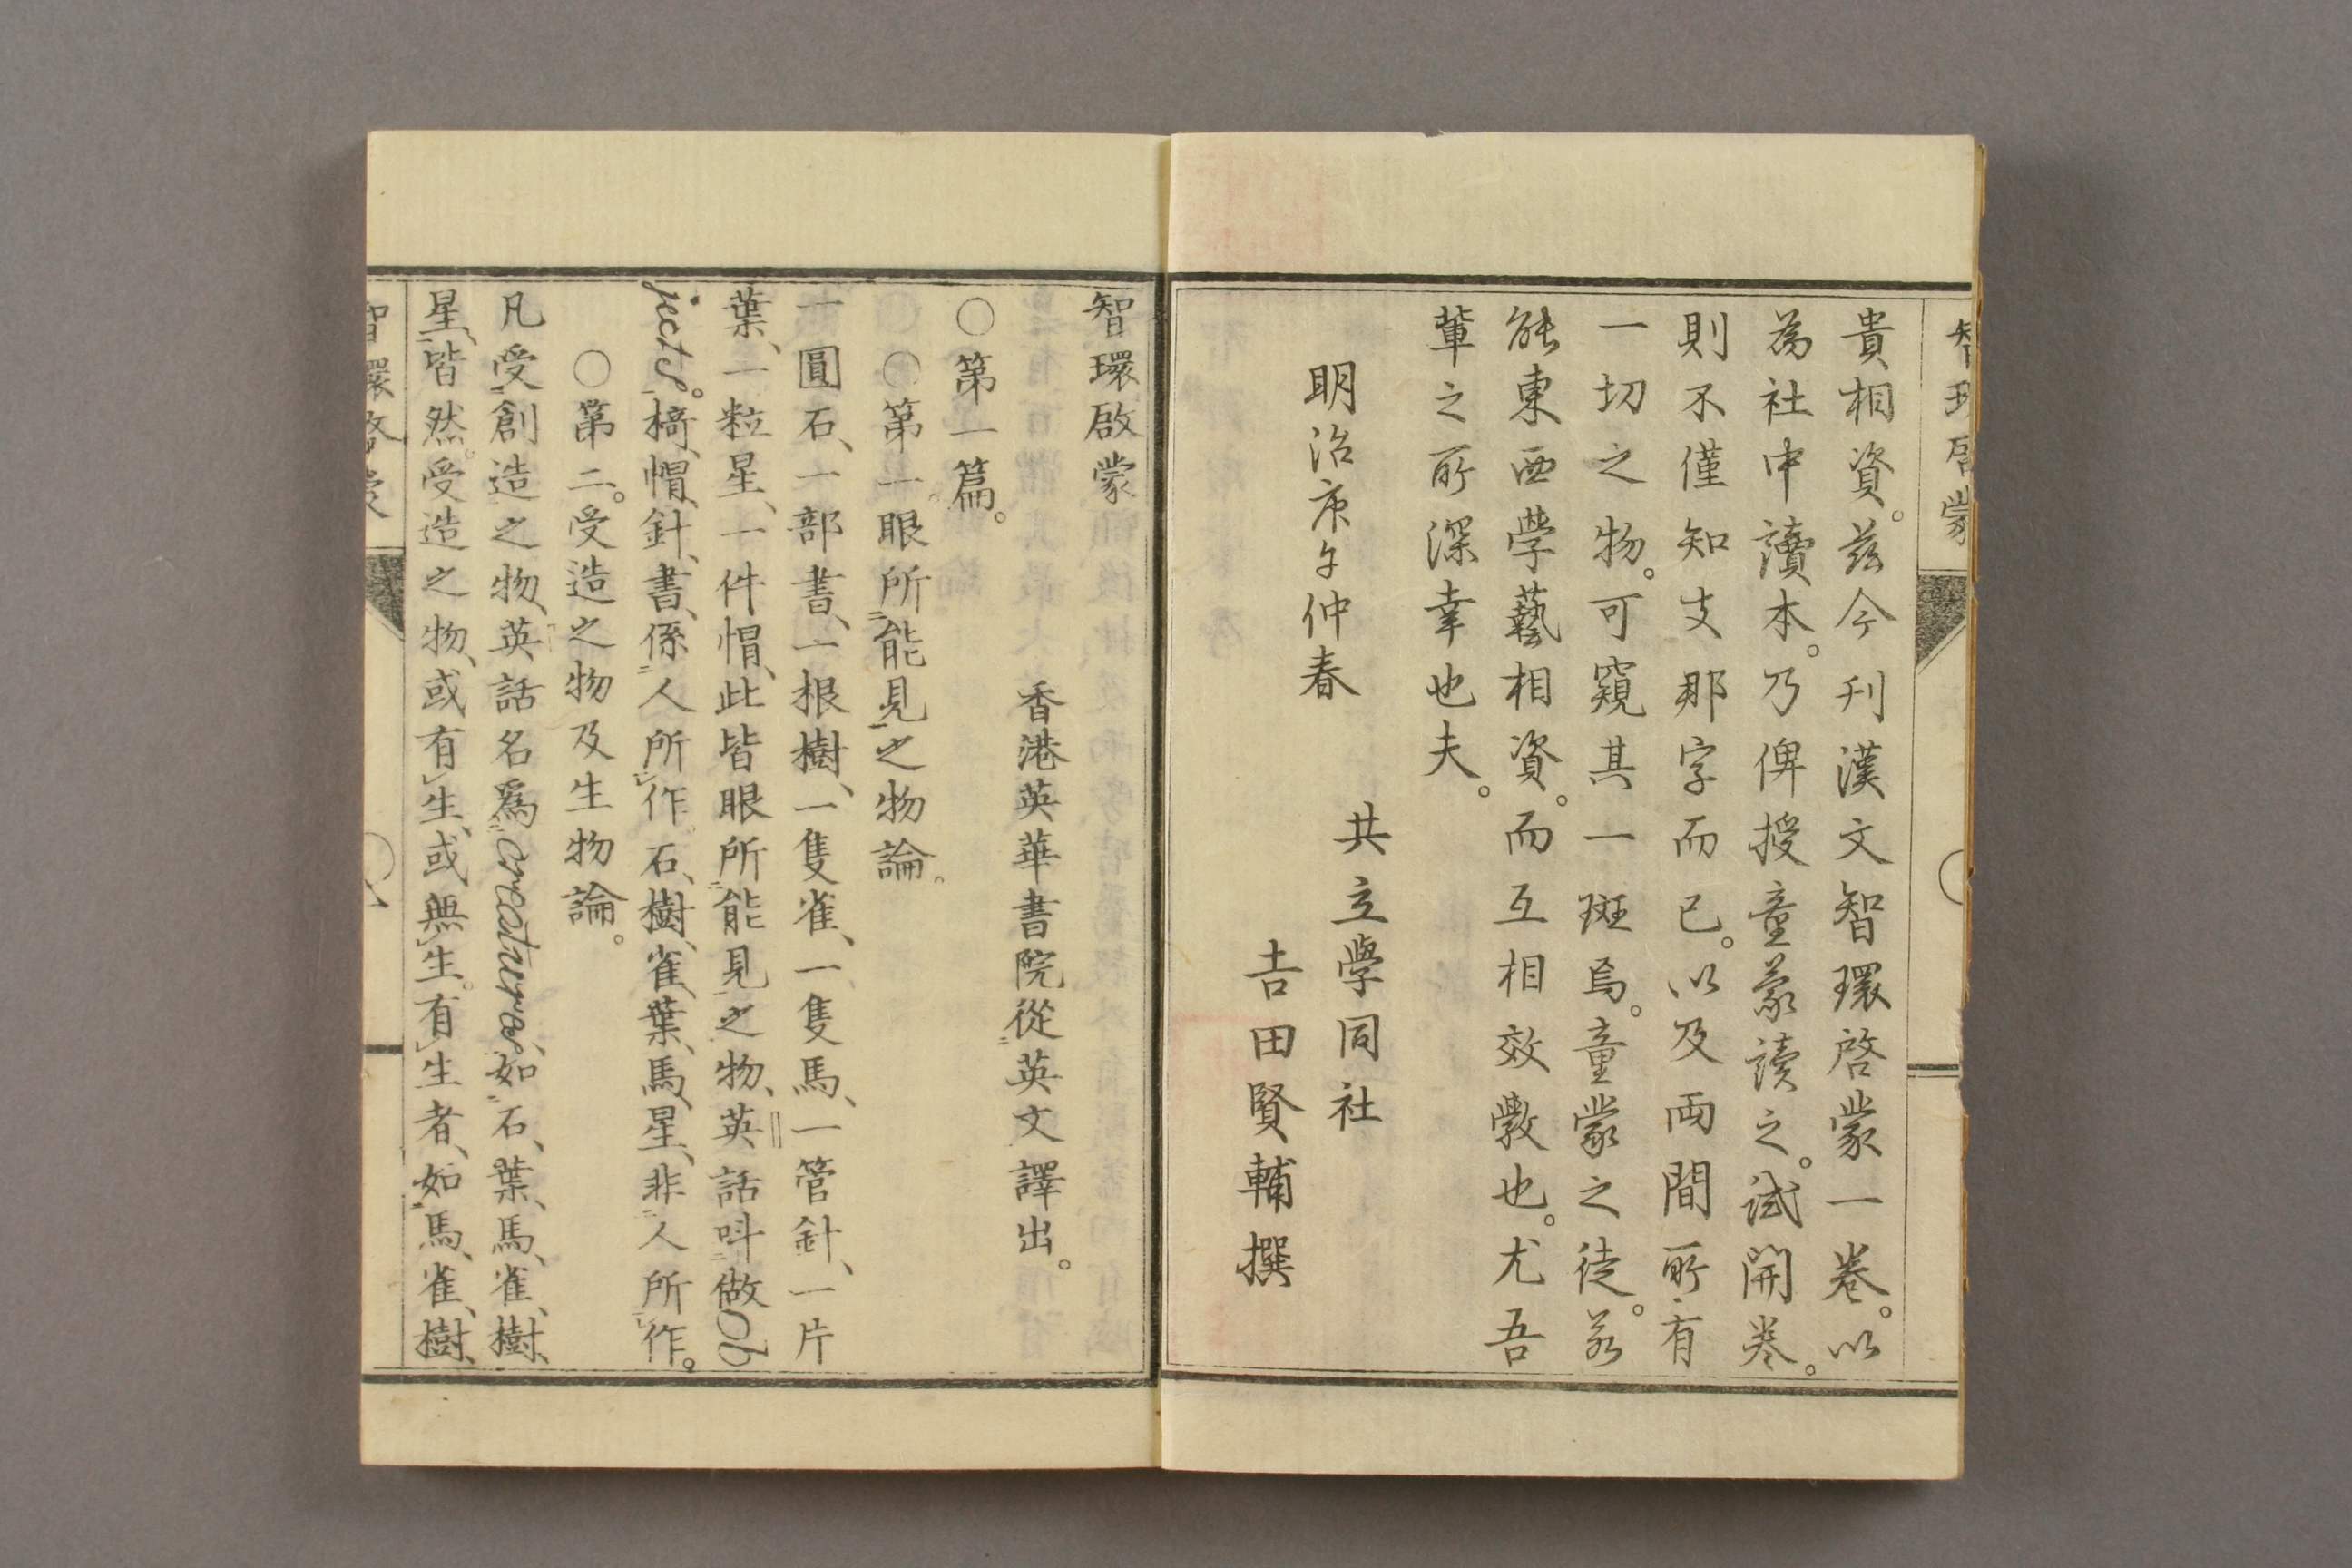 貴相資。茲今刊漢文智環啓蒙一卷。以
為社中讀本。乃俾授童蒙讀之。試開卷。
則不僅知支那字而已。以及両間所有
一切之物。可窺其一斑焉。童蒙之徒。若
能東西學藝相資。而互相效斅也。尤吾
輩之所深幸也夫。
明治庚午仲春
共立學同社
吉田賢輔撰
智環啟蒙
香港英華書院從英文譯出。
〇第一篇。
〇第一眼所能見之物論。
一圓石、一部書、一根樹、一隻雀、一隻馬、一管針、一片
葉、一粒星、一件帽、此皆眼所能見之物、英話呌做Ob
jects。椅、帽、針、書、係人所作石、樹、雀、葉、馬、星、非人所作。
〇第二。受造之物及生物論。
凡受創造之物、英話名爲creatures、如石、葉、馬、雀、樹、
星、皆然。受造之物、或有生、或無生。有生者、如馬、雀、樹、